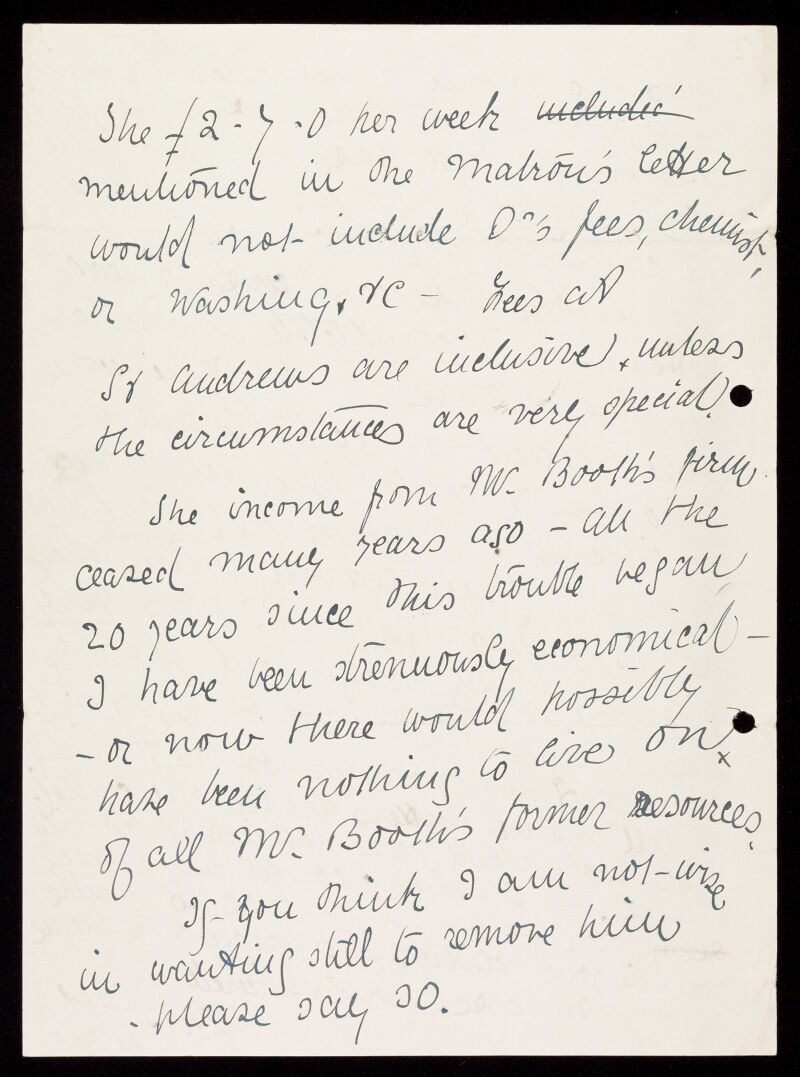 The £2-7-0 per week included
mentioned in the Matron's letter
would not include Drs fees, chemist,
or Washing, &c - Fees at
St Andrews are inclusive, unless
the circumstances are very special.
The income from Mr. Booth's firm
ceased many years ago - all the
20 years since this trouble began
I have been strenuously economical -
- or now there would possibly
have been nothing to live on,
of all Mr. Booth's former resources.
If you think I am not wise
in wanting still to remove him
- please say so.